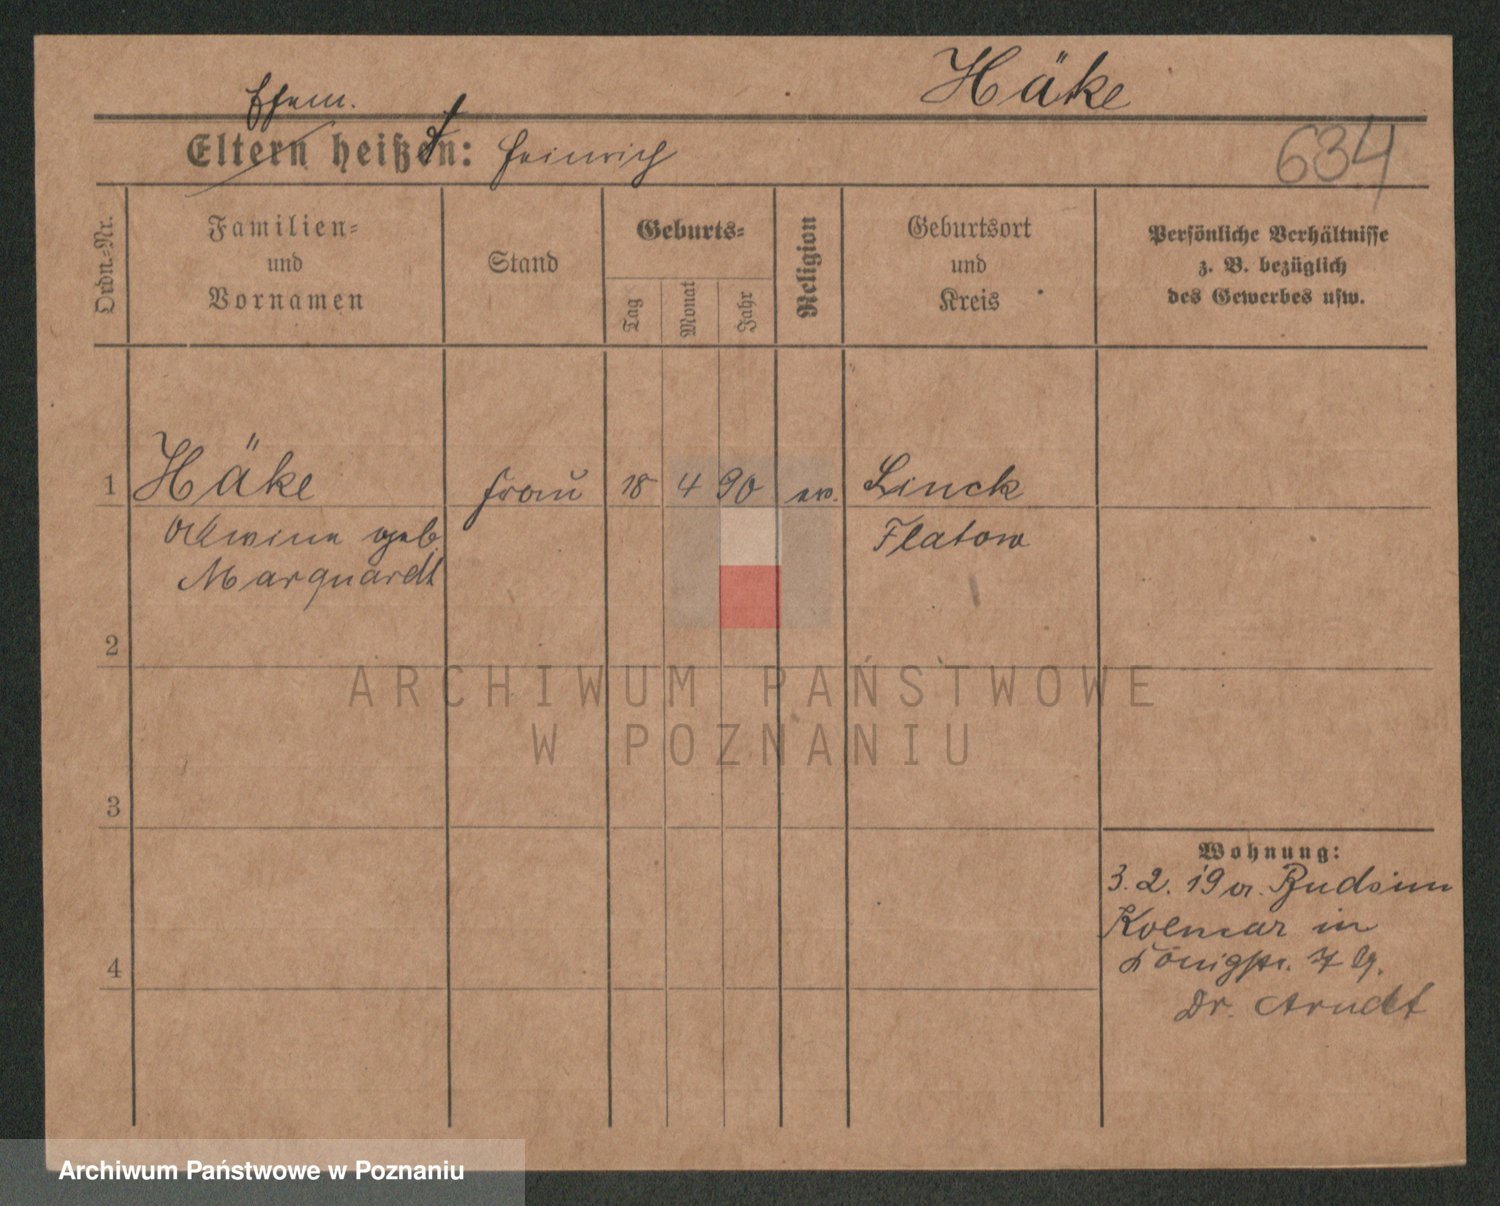 Häke
Ehem.
Eltern heißen: Heinrich
634
Ordn.=Nr.
Familien=
und
Vornamen
Stand
Geburts=
Tag
Monat
Jahr
Religion
Geburtsort
und
Kreis
Persönliche Verhältnisse
z. B. bezüglich
des Gewerbes usw.
1 Häke Frau 18 4 90 ev. Linck
Alwine geb Flatow
Marquardt
2
ARCHIWUM PAŃSTWOWE
W POZNANIU
3
Wohnung:
3. 2. 19 v. Budsinn
Kolmar in
Königstr. 7
4
Dr. Arndt
Archiwum Państwowe w Poznaniu